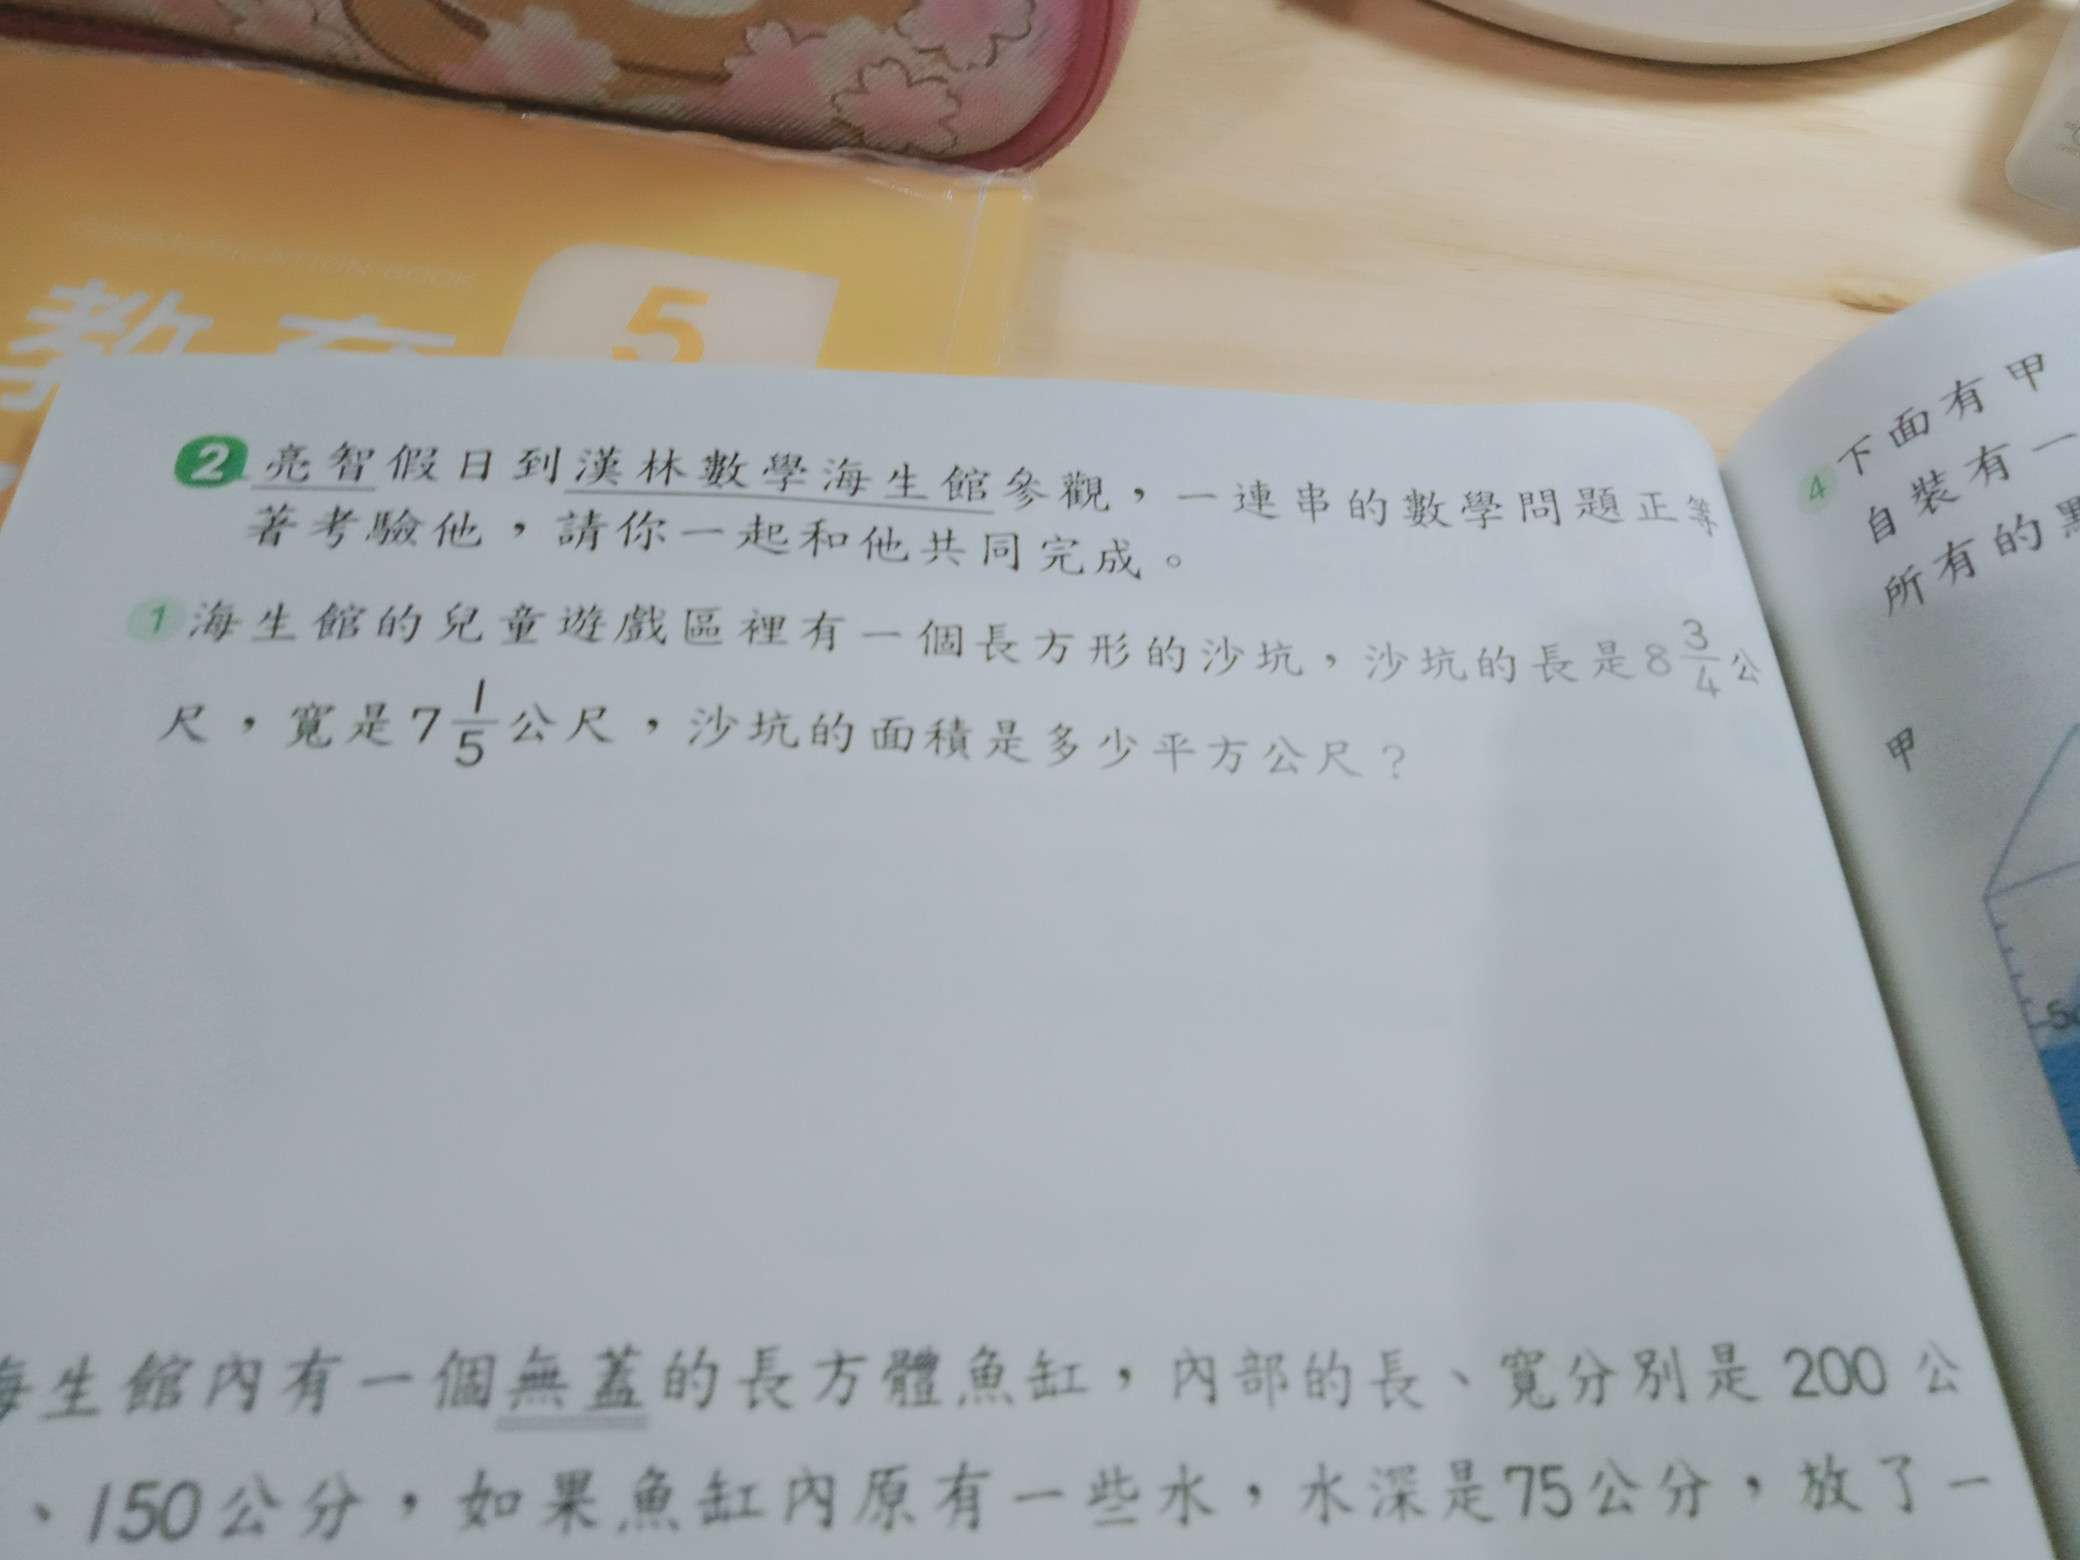 COMMUNICATION BOOK
教育
5
2 亮智假日到漢林數學海生館參觀，一連串的數學問題正等
著考驗他，請你一起和他共同完成。
1 海生館的兒童遊戲區裡有一個長方形的沙坑，沙坑的長是8 3/4 公
尺，寬是7 1/5 公尺，沙坑的面積是多少平方公尺？
海生館內有一個無蓋的長方體魚缸，內部的長、寬分別是 200 公
、150公分，如果魚缸內原有一些水，水深是75公分，放了一
4 下面有甲
自裝有一
所有的
甲